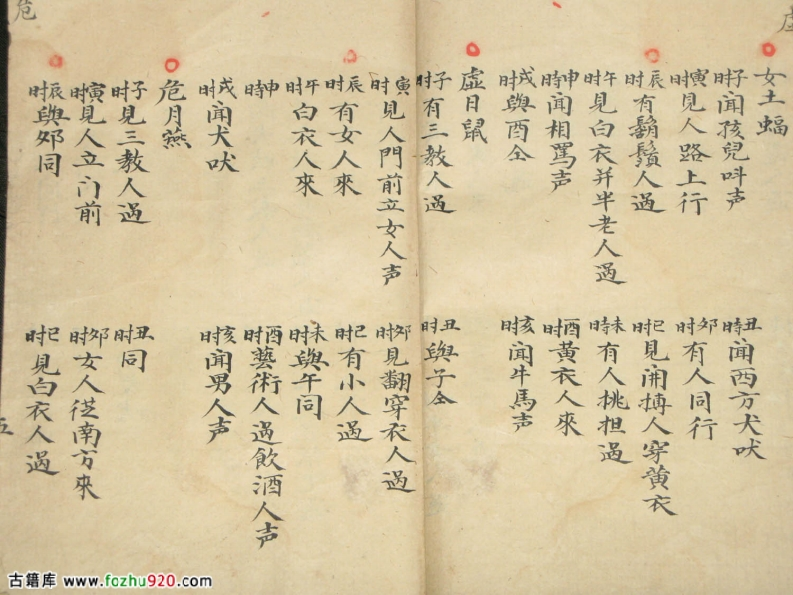 虚
女土蝠
子时闻孩兒呌声
丑时闻西方犬吠
寅时見人路上行
夘时有人同行
辰时有鬍鬚人過
巳时見開搏人穿黄衣
午时見白衣并半老人過
未时有人挑担過
申时闻相罵声
酉时黄衣人來
戌时與酉仝
亥时闻牛馬声
虛日鼠
子时有三教人過
丑时與子仝
寅时見人門前立女人声
夘时見翻穿衣人過
辰时有女人來
巳时有小人過
午时白衣人來
未时與午同
申时
酉时藝術人過飲酒人声
戌时闻犬吠
亥时闻男人声
危月燕
子时見三教人過
丑时同
寅时見人立门前
夘时女人從南方來
辰时與夘同
巳时見白衣人過
危
五
古籍库 www.fozhu920.com